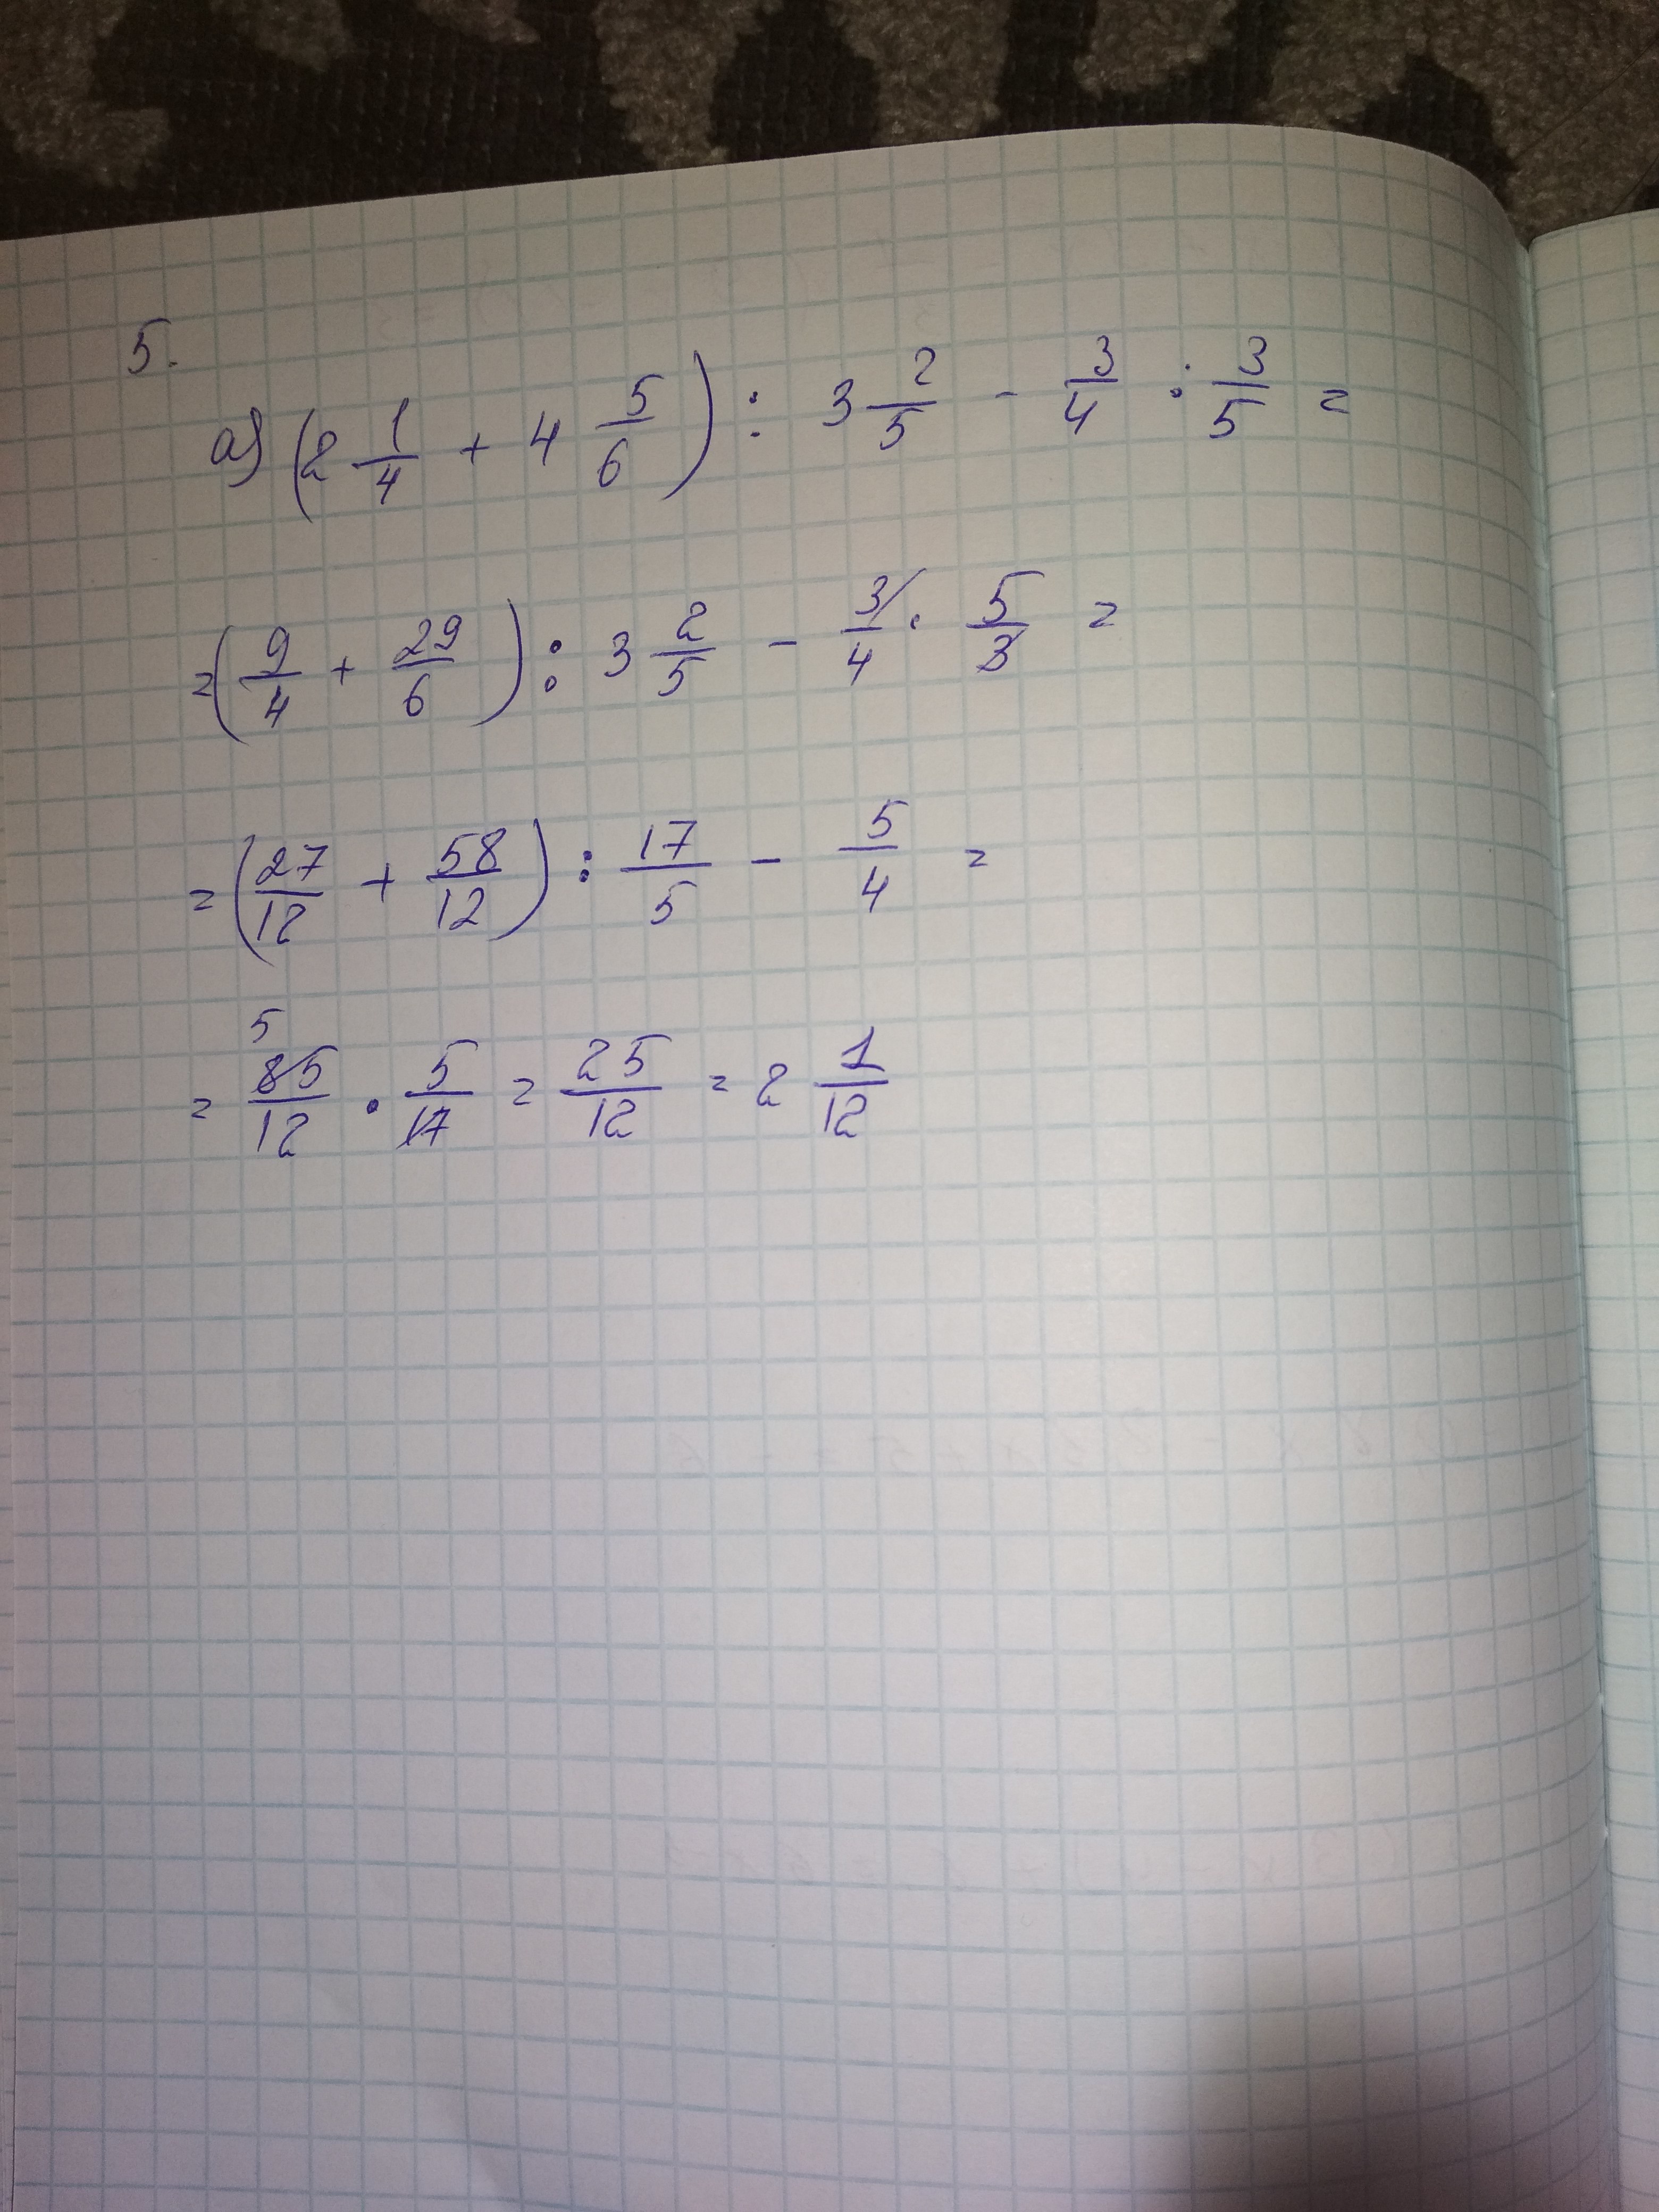 5.
а) (2 1/4 + 4 5/6) : 3 2/5 - 3/4 : 3/5 =
= (9/4 + 29/6) : 3 2/5 - 3/4 · 5/3 =
= (27/12 + 58/12) : 17/5 - 5/4 =
5
= 85/12 · 5/17 = 25/12 = 2 1/12